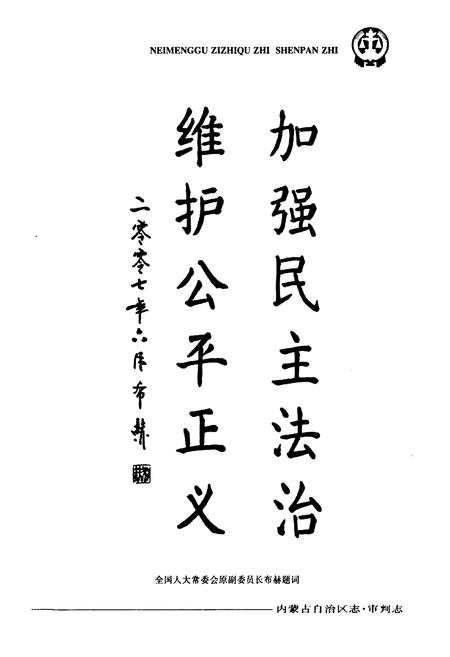 NEIMENGGU ZIZHIQU ZHI SHENPAN ZHI
加强民主法治
维护公平正义
二零零七年六月布赫
全国人大常委会原副委员长布赫题词
内蒙古自治区志·审判志